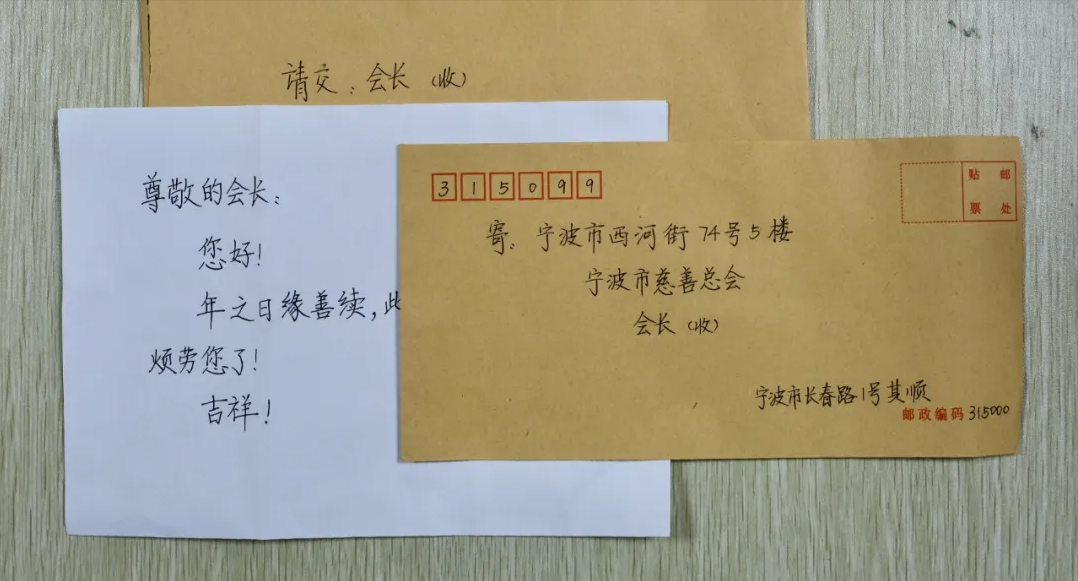 请交：会长（收）
尊敬的会长：
您好！
年之日缘善续，此
烦劳您了！
吉祥！
315099
贴邮
票处
寄：宁波市西河街74号5楼
宁波市慈善总会
会长（收）
宁波市长春路1号其顺
邮政编码 315000